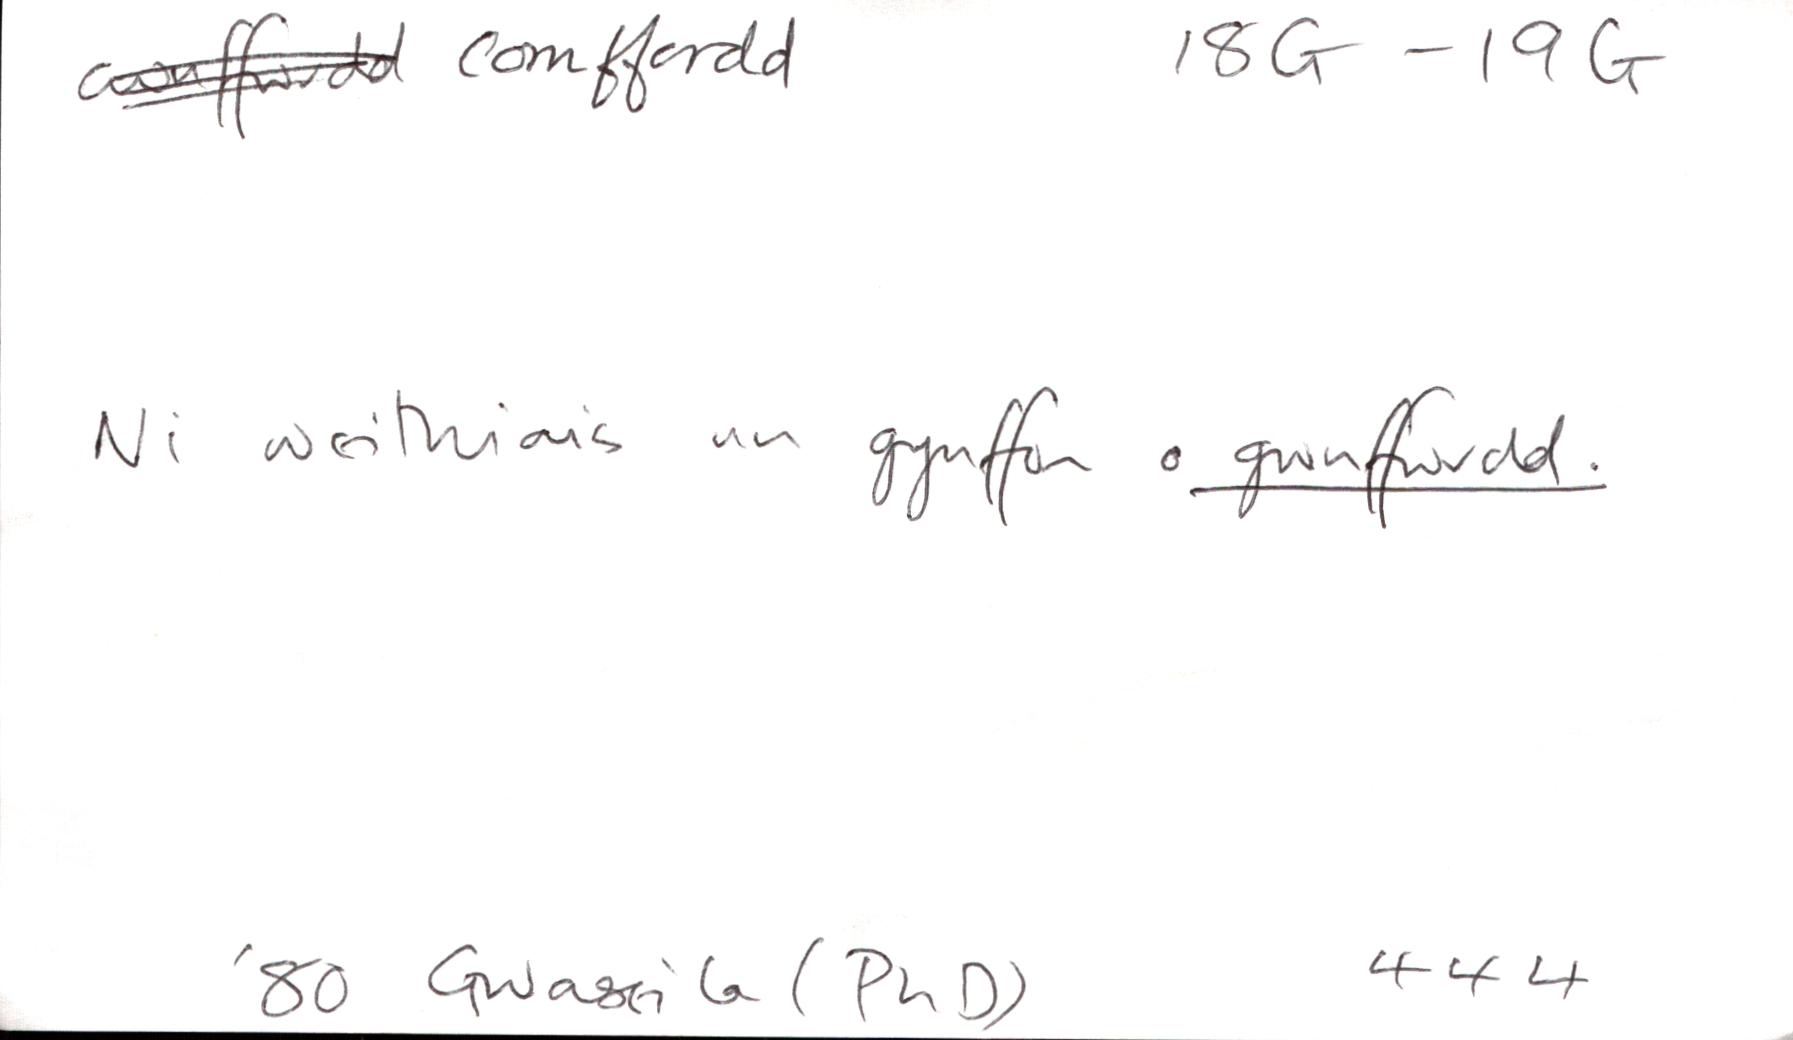 cwnffwrdd comffordd 18G - 19G
Ni weithiais un gynffon o gwnffwrdd.
'80 (PhD) 444